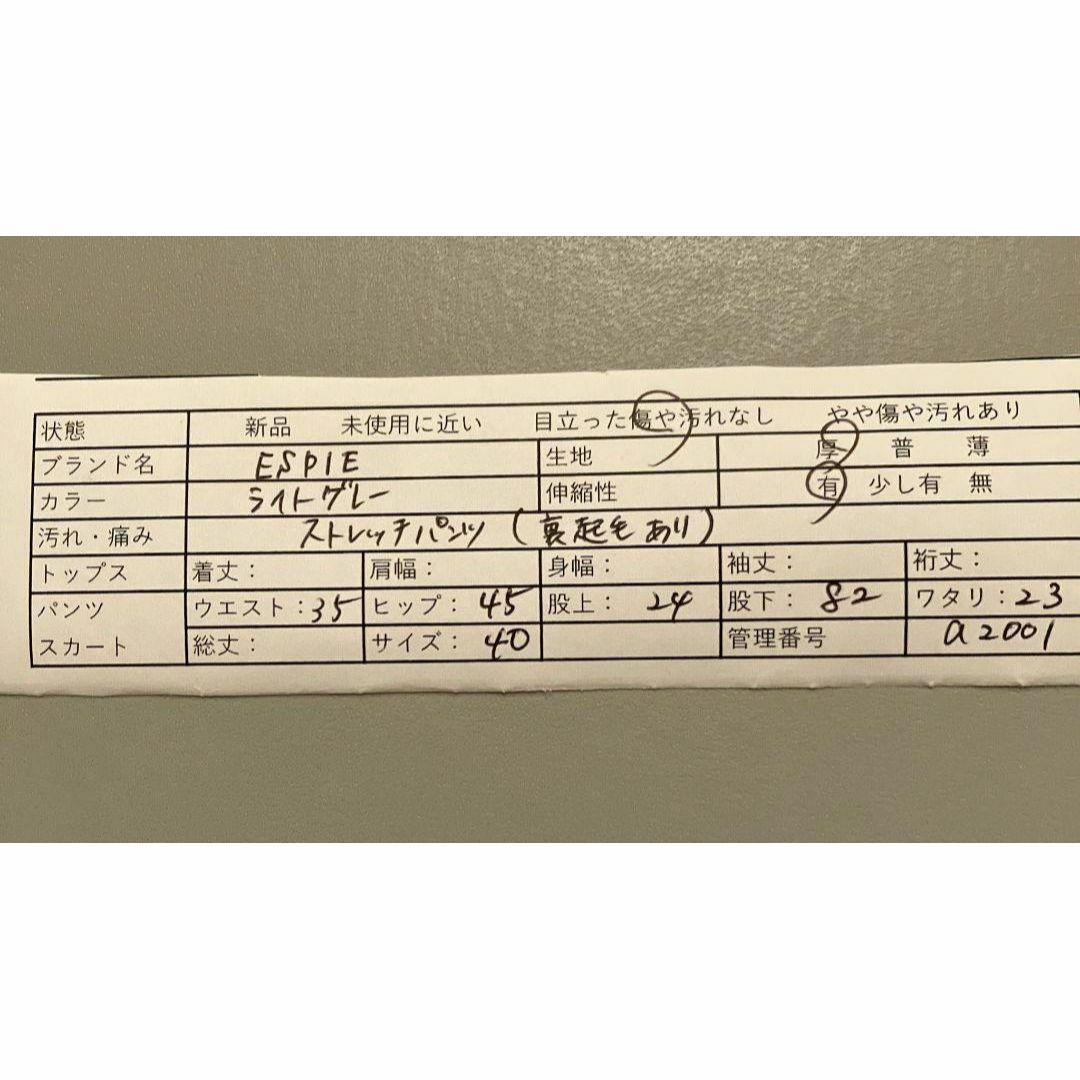 状態 新品 未使用に近い 目立った傷や汚れなし やや傷や汚れあり
ブランド名 ESPIE 生地 厚 普 薄
カラー ライトグレー 伸縮性 有 少し有 無
汚れ・痛み ストレッチパンツ(裏起毛あり)
トップス 着丈: 肩幅: 身幅: 袖丈: 裄丈:
パンツ ウエスト:35 ヒップ:45 股上: 24 股下: 82 ワタリ:23
スカート 総丈: サイズ: 40 管理番号 a2001